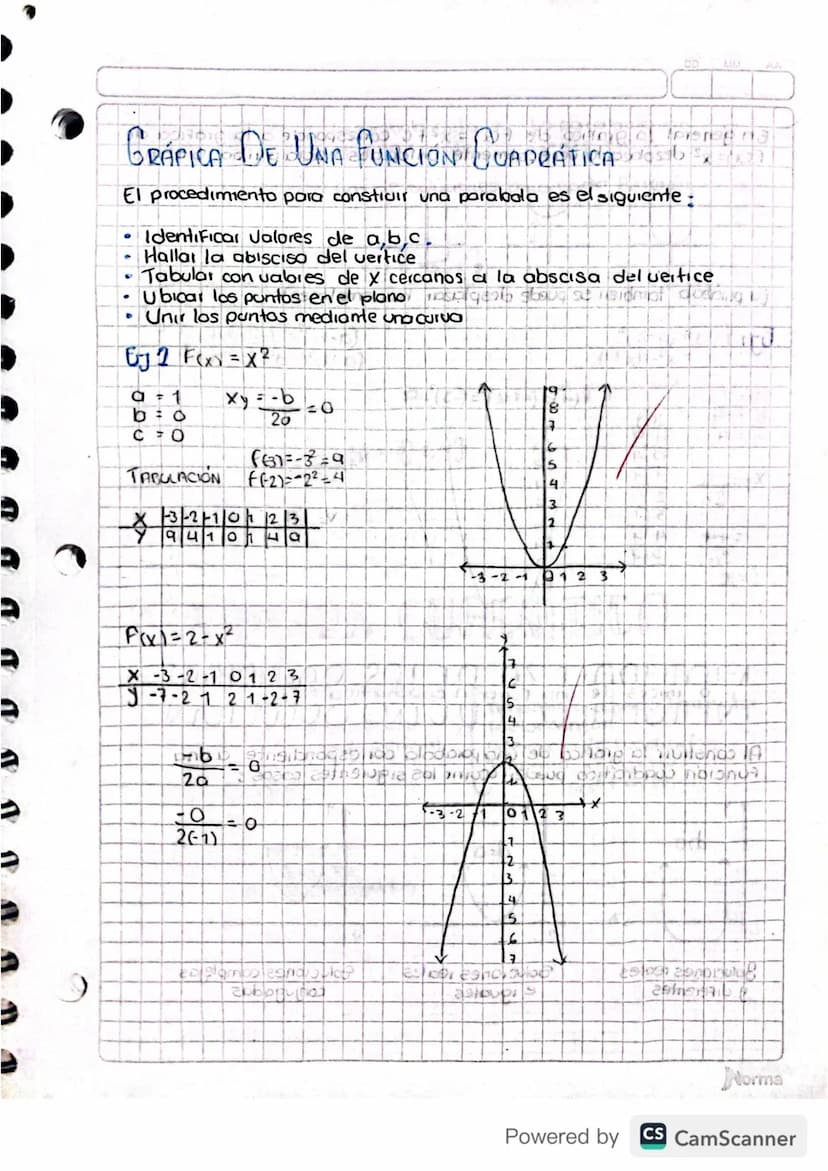 DD MM AA
GRÁFICA DE UNA FUNCIÓN CUADRÁTICA
El procedimiento para constiuir una parabola es el siguiente:
• Identificar valores de a,b,c.
• Hallar la abiscisa del vertice
• Tabular con valores de x cercanos a la abscisa del vertice
• Ubicar los puntos en el plano
• Unir los puntos mediante una curva
F(x) = x²
a = 1
b = 0
c = 0
-b
2a
= 0
f(-3)=-3²=9
TABULACIÓN f(-2)=-2²=4
X -3 -2 -1 0 1 2 3
Y 9 4 1 0 1 4 9
9
8
7
6
5
4
3
2
1
-3 -2 -1 0 1 2 3
F(x) = 2 - x²
X -3 -2 -1 0 1 2 3
y -7 -2 1 2 1 -2 -7
-b
2a
= 0
-0
2(-1)
= 0
y
7
6
5
4
3
2
1
-3 -2 -1 0 1 2 3 x
1
2
3
4
5
6
7
Norma
Powered by CS CamScanner